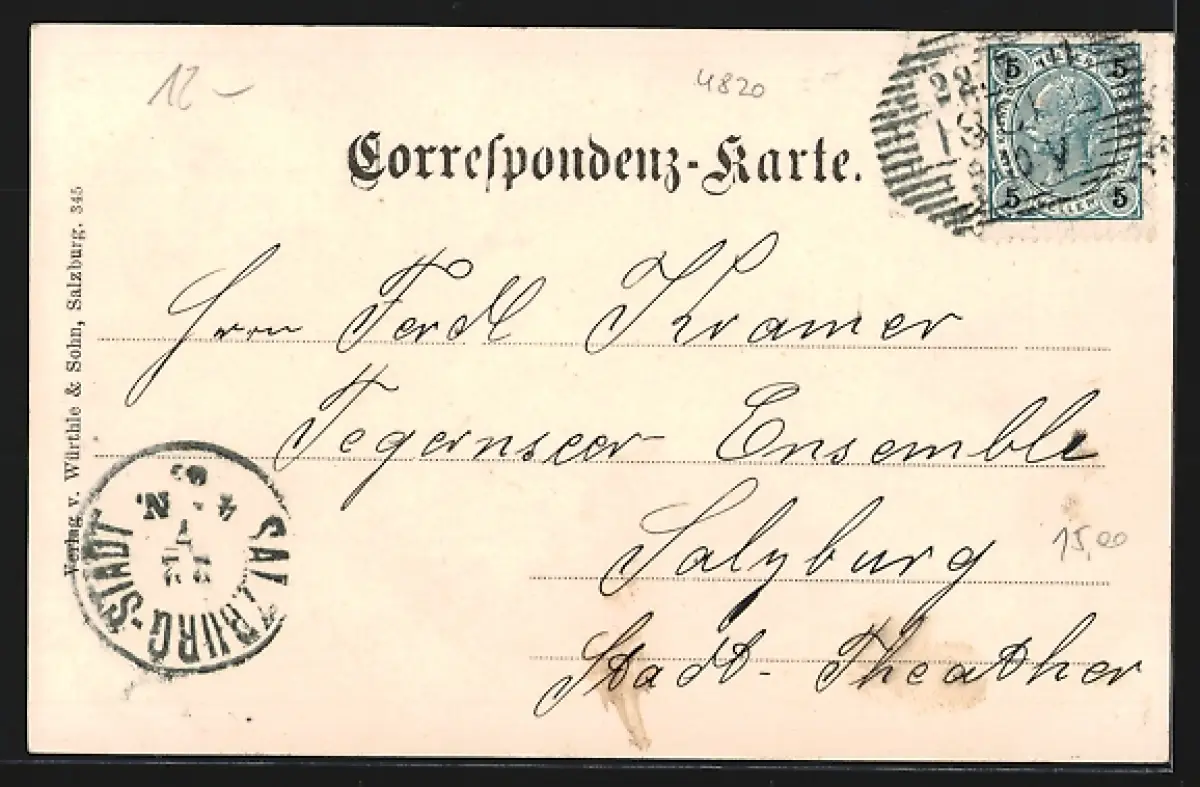 12 –
4820
Correspondenz-Karte.
5 5
HELLER
5 5
HELLER
Herrn Ferdl Kramer
Tegernseer Ensemble
Salzburg
15,00
Stadt-Theather
Verlag v. Würthle & Sohn, Salzburg. 345
SALZBURG-STADT